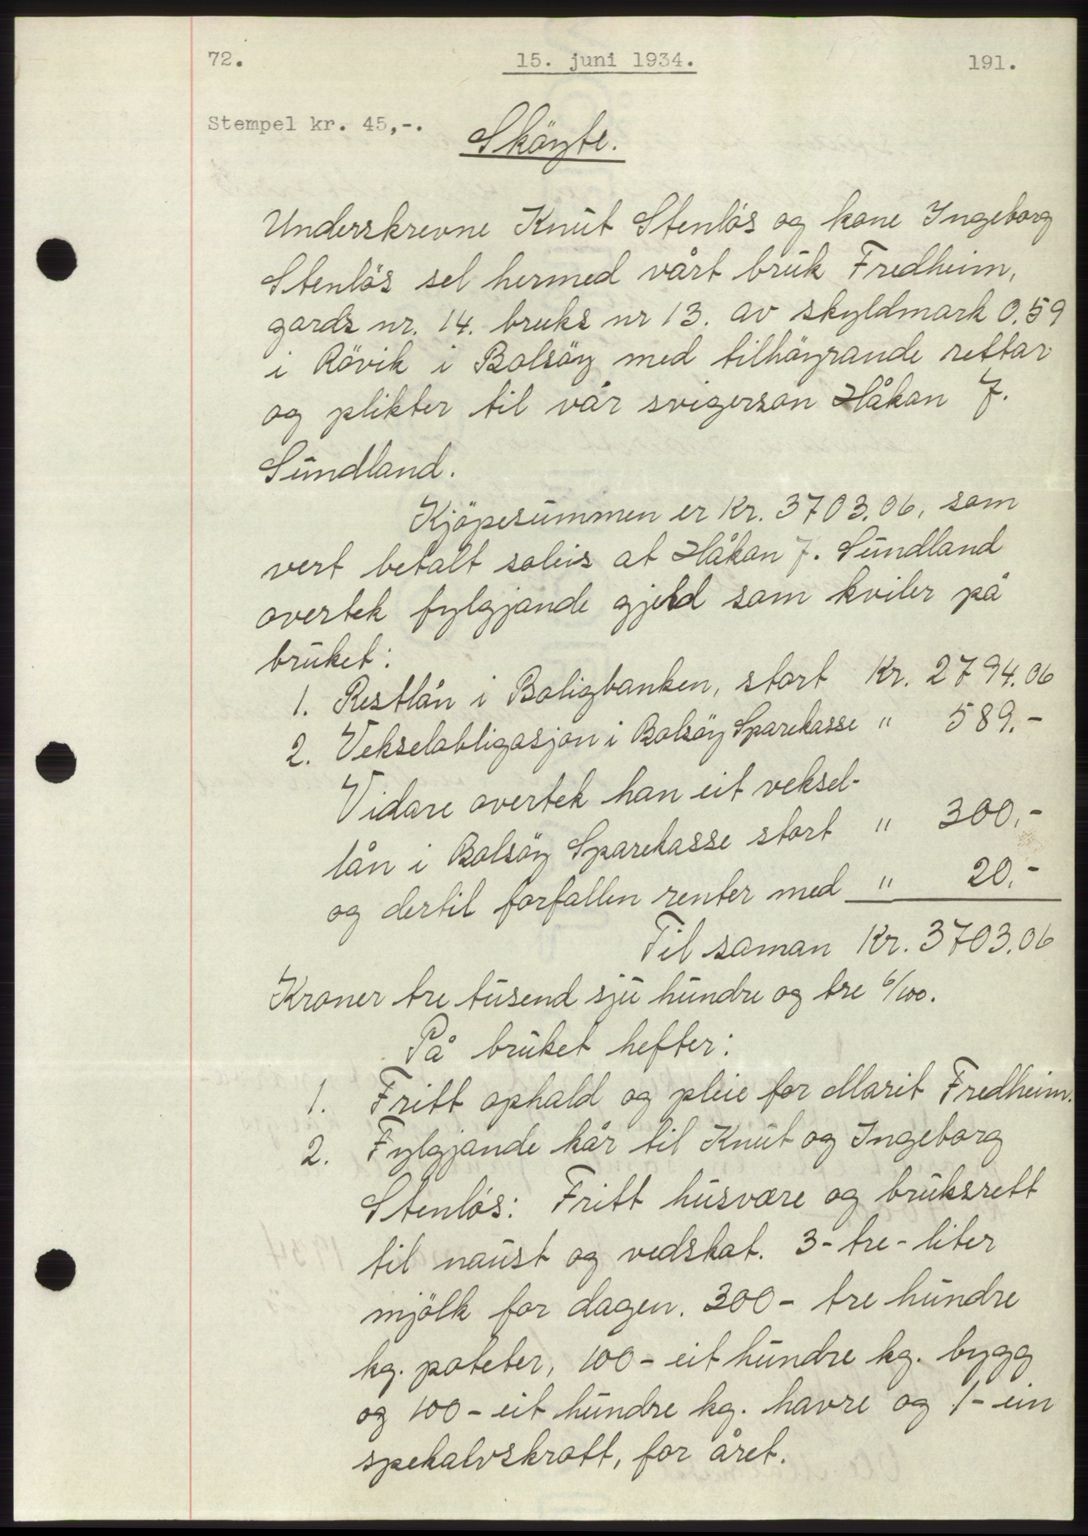 72. 15. juni 1934. 191.
Stempel kr. 45,-.
Sköyte.
Underskrevne Knut Stenlös og kone Ingeborg
Stenlös sel hermed vårt bruk Fredheim,
gards nr. 14. bruks nr 13. av skyldmark 0.59
i Rövik i Bolsöy med tilhöyrande rettar
og plikter til vår svigerson Håkan J.
Sundland.
Kjöpesummen er Kr. 3703.06, som
vert betalt soleis at Håkan J. Sundland
overtek fylgjande gjeld som kviler på
bruket:
1. Restlån i Boligbanken, stort Kr. 2794.06
2. Vekselobligasjon i Bolsöy Sparekasse " 589.-
Vidare overtek han eit veksel-
lån i Bolsöy Sparekasse stort " 300.-
og dertil forfallen renter med " 20.-
Til saman Kr. 3703.06
Kroner tre tusend sju hundre og tre 6/100.
På bruket hefter:
1. Fritt ophald og pleie for Marit Fredheim.
2. Fylgjande kår til Knut og Ingeborg
Stenlös: Fritt husvære og bruksrett
til naust og vedskot. 3-tre-liter
mjölk for dagen. 300- tre hundre
kg. poteter, 100- eit hundre kg. bygg
og 100- eit hundre kg. havre og 1- ein
spekalvskrott, for året.